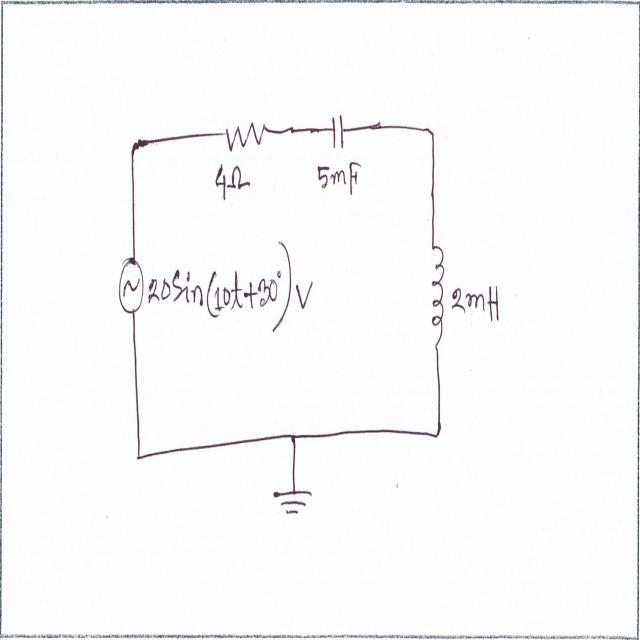 4Ω
5mF
20Sin(10t+30°) V
2mH